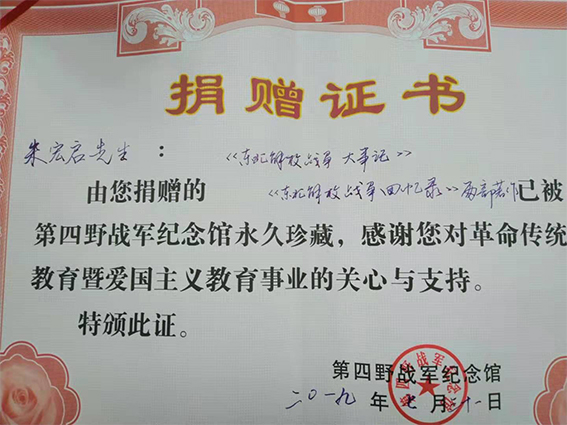 捐赠证书
朱宏启先生：
《东北解放战争大事记》
由您捐赠的《东北解放战争回忆录》两部著作已被
第四野战军纪念馆永久珍藏，感谢您对革命传统
教育暨爱国主义教育事业的关心与支持。
特颁此证。
第四野战军纪念馆
二〇一九年七月二十一日